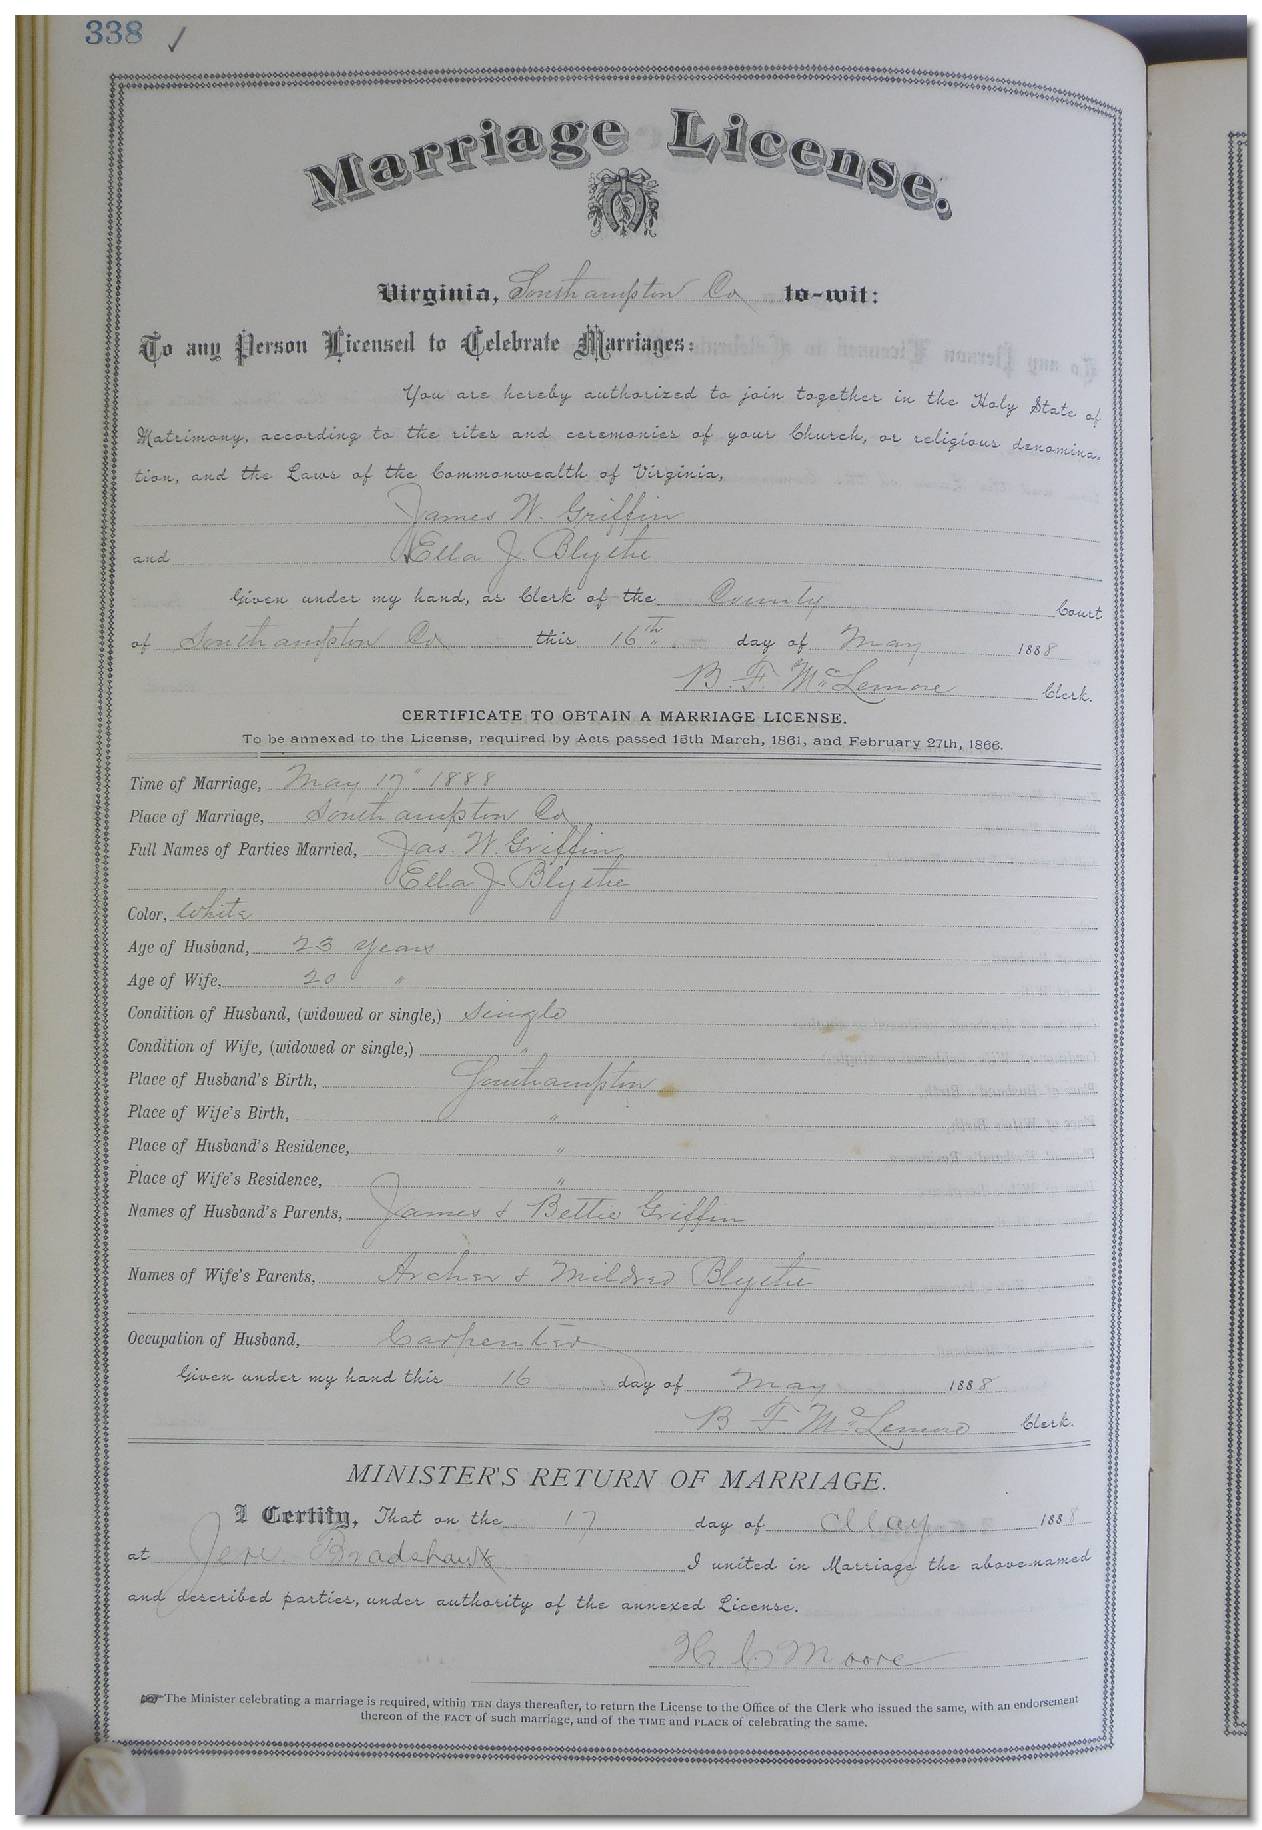 338 ✓
Marriage License.
Virginia, Southampton Co to-wit:
To any Person Licensed to Celebrate Marriages:
You are hereby authorized to join together in the Holy State of
Matrimony, according to the rites and ceremonies of your Church, or religious denomina-
tion, and the Laws of the Commonwealth of Virginia,
James W. Griffin
and Ella J Blythe
Given under my hand, as Clerk of the County Court
of Southampton Co this 16th day of May 1888
B. F. McLemore Clerk.
CERTIFICATE TO OBTAIN A MARRIAGE LICENSE.
To be annexed to the License, required by Acts passed 15th March, 1861, and February 27th, 1866.
Time of Marriage, May 17" 1888
Place of Marriage, Southampton Co
Full Names of Parties Married, Jas. W. Griffin
Ella J Blythe
Color, White
Age of Husband, 23 years
Age of Wife, 20 "
Condition of Husband, (widowed or single,) Single
Condition of Wife, (widowed or single,) "
Place of Husband's Birth, Southampton
Place of Wife's Birth, "
Place of Husband's Residence, "
Place of Wife's Residence, "
Names of Husband's Parents, James & Bettie Griffin
Names of Wife's Parents, Archer & Mildred Blythe
Occupation of Husband, Carpenter
Given under my hand this 16 day of May 1888
B F McLemore Clerk.
MINISTER'S RETURN OF MARRIAGE.
I Certify, That on the 17 day of May 1888
at Jere. Bradshaws I united in Marriage the above-named
and described parties, under authority of the annexed License.
H C Moore
☞ The Minister celebrating a marriage is required, within TEN days thereafter, to return the License to the Office of the Clerk who issued the same, with an endorsement
thereon of the FACT of such marriage, and of the TIME and PLACE of celebrating the same.